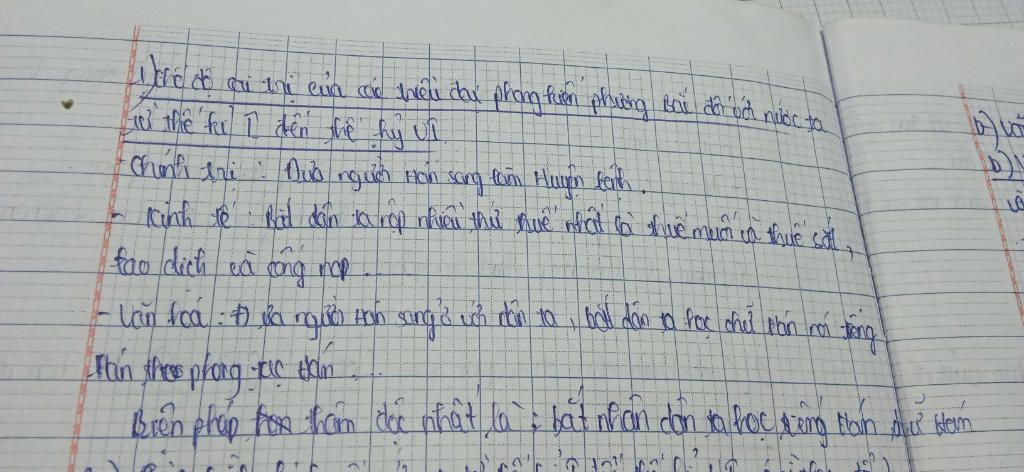 1) Chế độ cai trị của các triều đại phong kiến phương Bắc đối với nước ta
từ thế kỉ I đến thế kỷ VI
- Chính trị : Đưa người Hán sang làm Huyện lệnh.
- Kinh tế : Bắt dân ta nộp nhiều thứ thuế nhất là thuế muối và thuế sắt,
lao dịch và cống nạp.
- Văn hoá : Đưa người Hán sang ở với dân ta, bắt dân ta học chữ Hán nói tiếng
Hán theo phong tục Hán...
Biện pháp thâm độc nhất là : bắt nhân dân ta học tiếng Hán chữ Hán